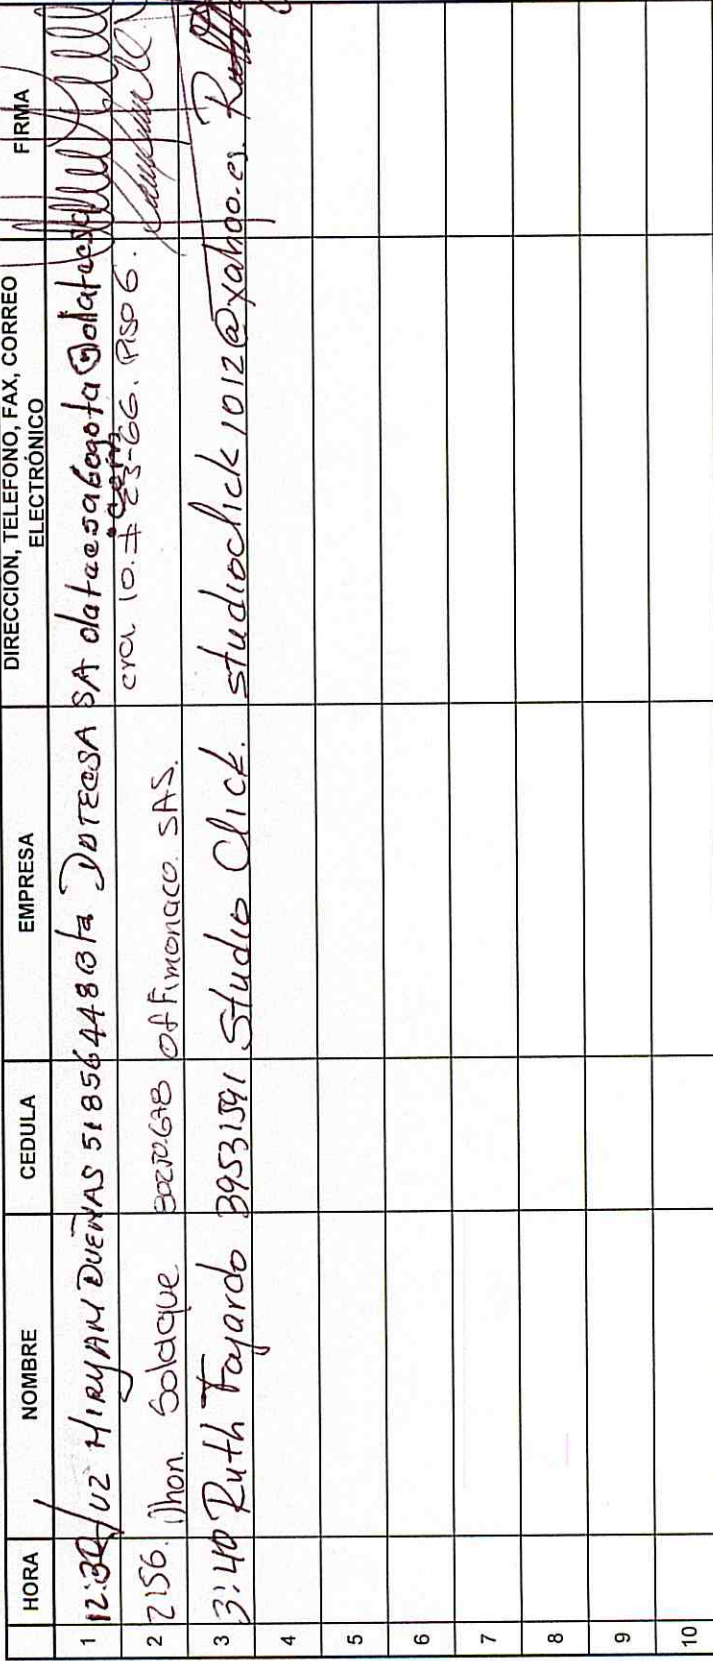 HORA NOMBRE CEDULA EMPRESA DIRECCIÓN, TELEFONO, FAX, CORREO ELECTRÓNICO FIRMA
1 12:30 Luz MIRYAM DUEÑAS 51856448 Bta DATECSA SA datacsabogota@datacsa
.com
2 2:56. Jhon. Soldaque Offimonaco. SAS. cra 10. # 23-66. PISO 6.
3 3:40 Ruth Fajardo 39531591 Studio Click. studioclick1012@yahoo.es. Ruth
4
5
6
7
8
9
10